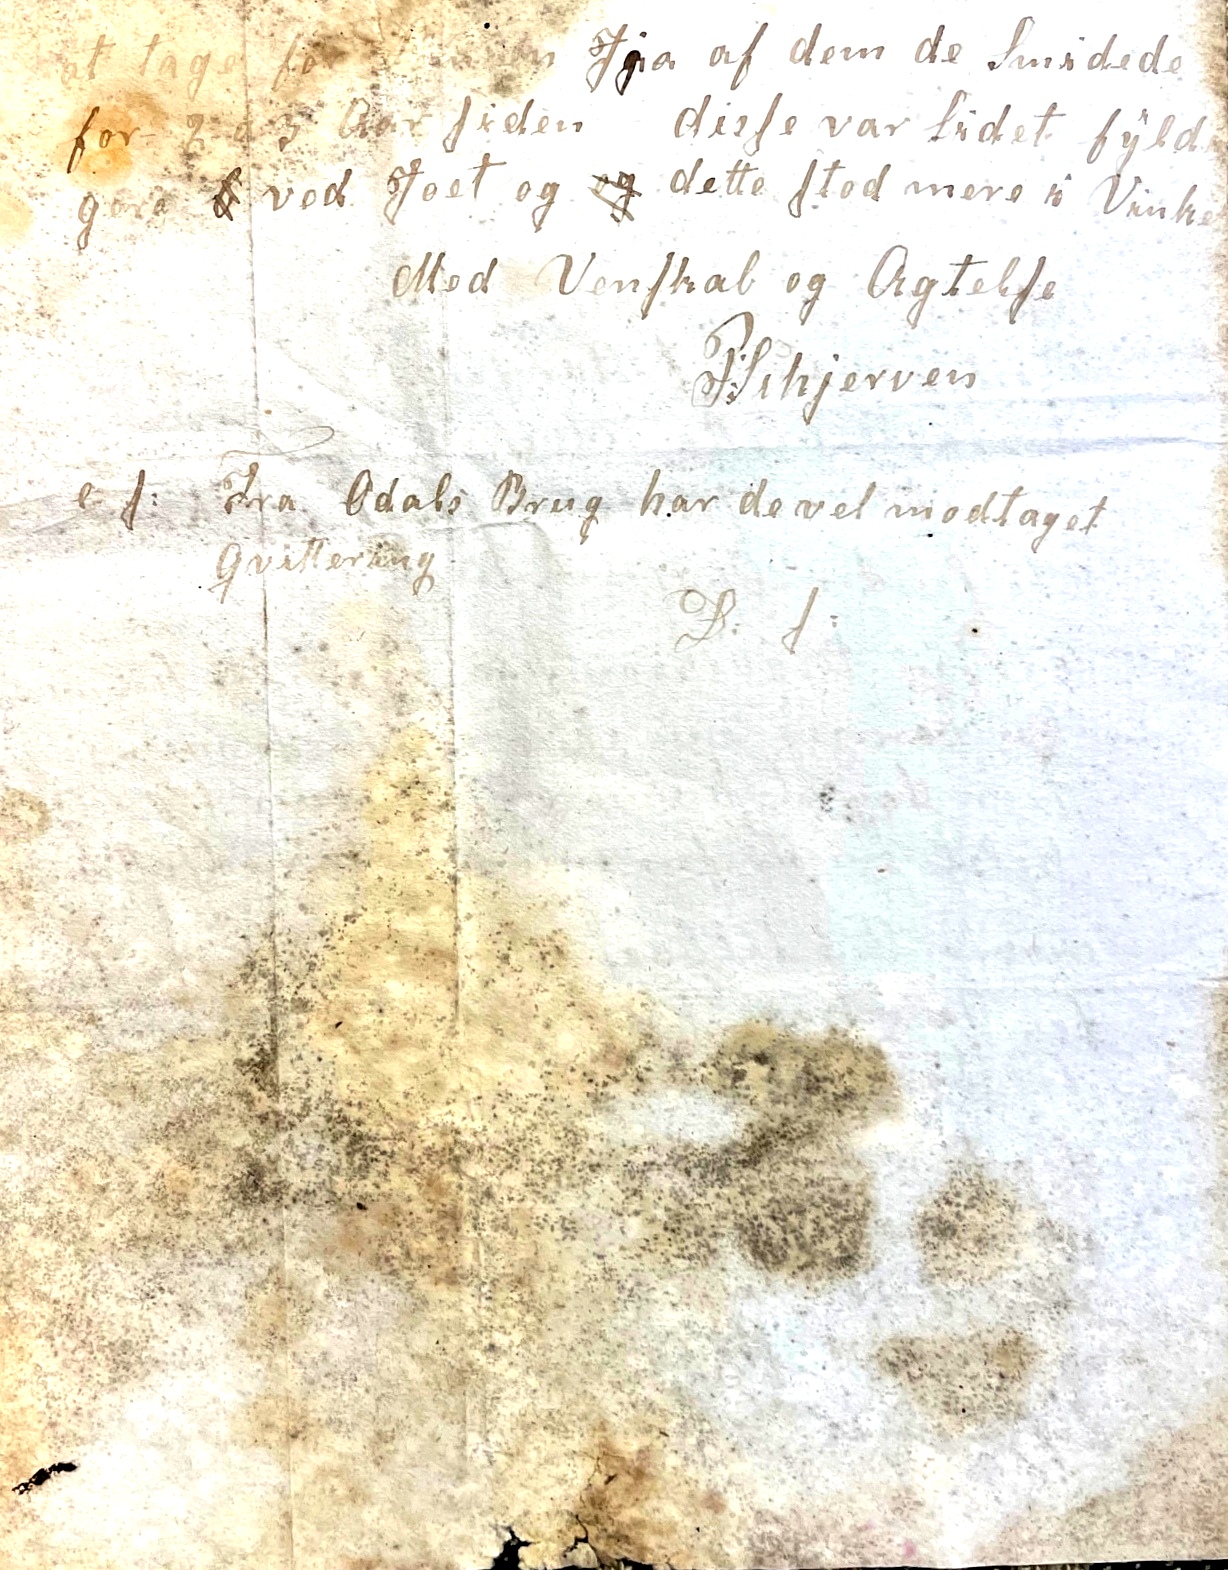 at tage for en Tja af dem de Smidede
for 2 a 3 Aar siden disse var lidet fyld
gere ved Foet og og dette stod mere i Vinke
Med Venskab og Agtelse
P Schjerven
e s: Fra Odals Brug har de vel modtaget
Qvittering
D. s: